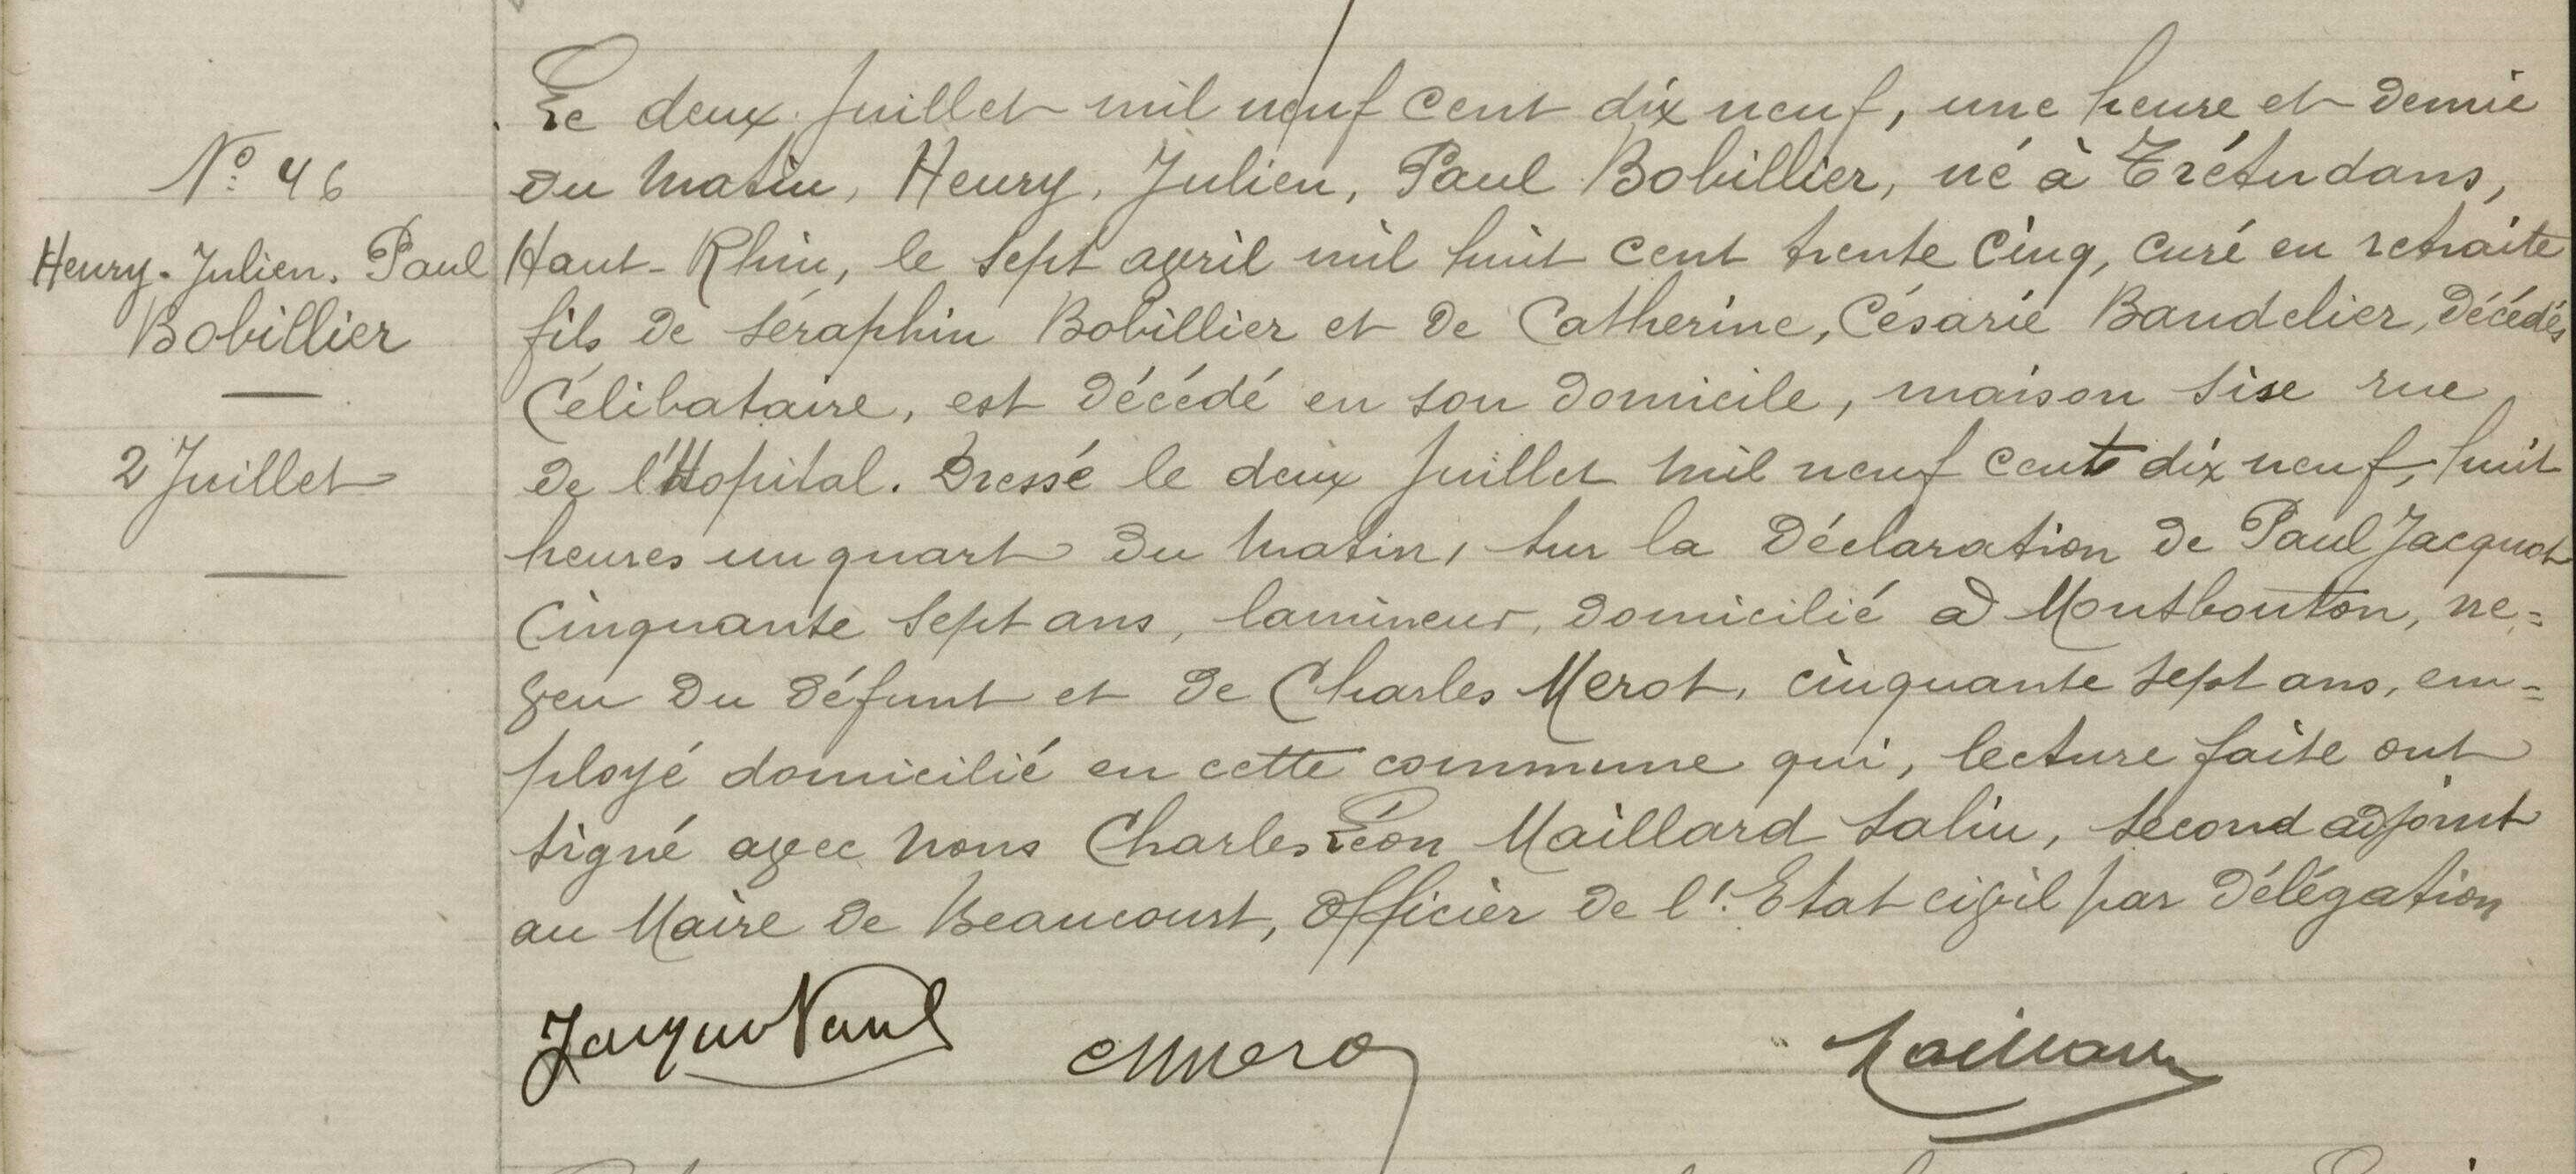 N° 46
Henry. Julien. Paul
Bobillier
2 Juillet
Le deux Juillet mil neuf cent dix neuf, une heure et demie
du matin, Henry, Julien, Paul Bobillier, né à Trétudans,
Haut-Rhin, le sept avril mil huit cent trente cinq, curé en retraite
fils de Séraphin Bobillier et de Catherine, Césarie Baudelier, décédés
Célibataire, est décédé en son domicile, maison sise rue
de l'Hopital. Dressé le deux Juillet mil neuf cent dix neuf, huit
heures un quart du matin, sur la déclaration de Paul Jacquot
Cinquante sept ans, lamineur, domicilié à Montbouton, ne=
veu du défunt et de Charles Merot, cinquante sept ans, em=
ployé domicilié en cette commune qui, lecture faite ont
signé avec nous Charles Léon Maillard Salin, second adjoint
au Maire de Beaucourt, officier de l'Etat civil par délégation
Jacquot Paul
CMMero
Maillard